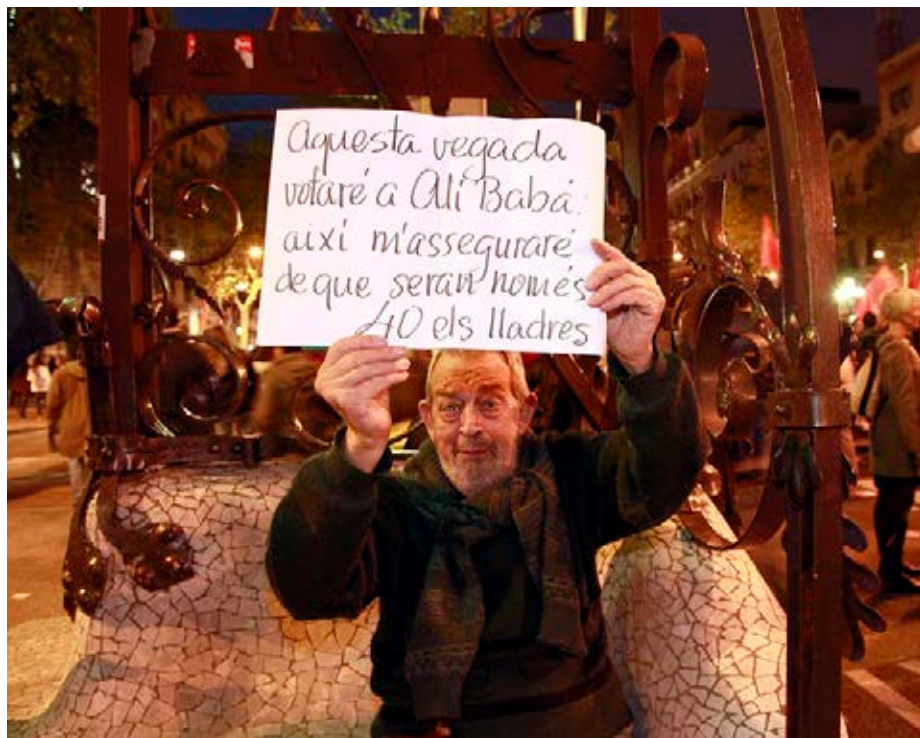 Aquesta vegada
votaré a Alí Babá:
així m'asseguraré
de que serán només
40 els lladres